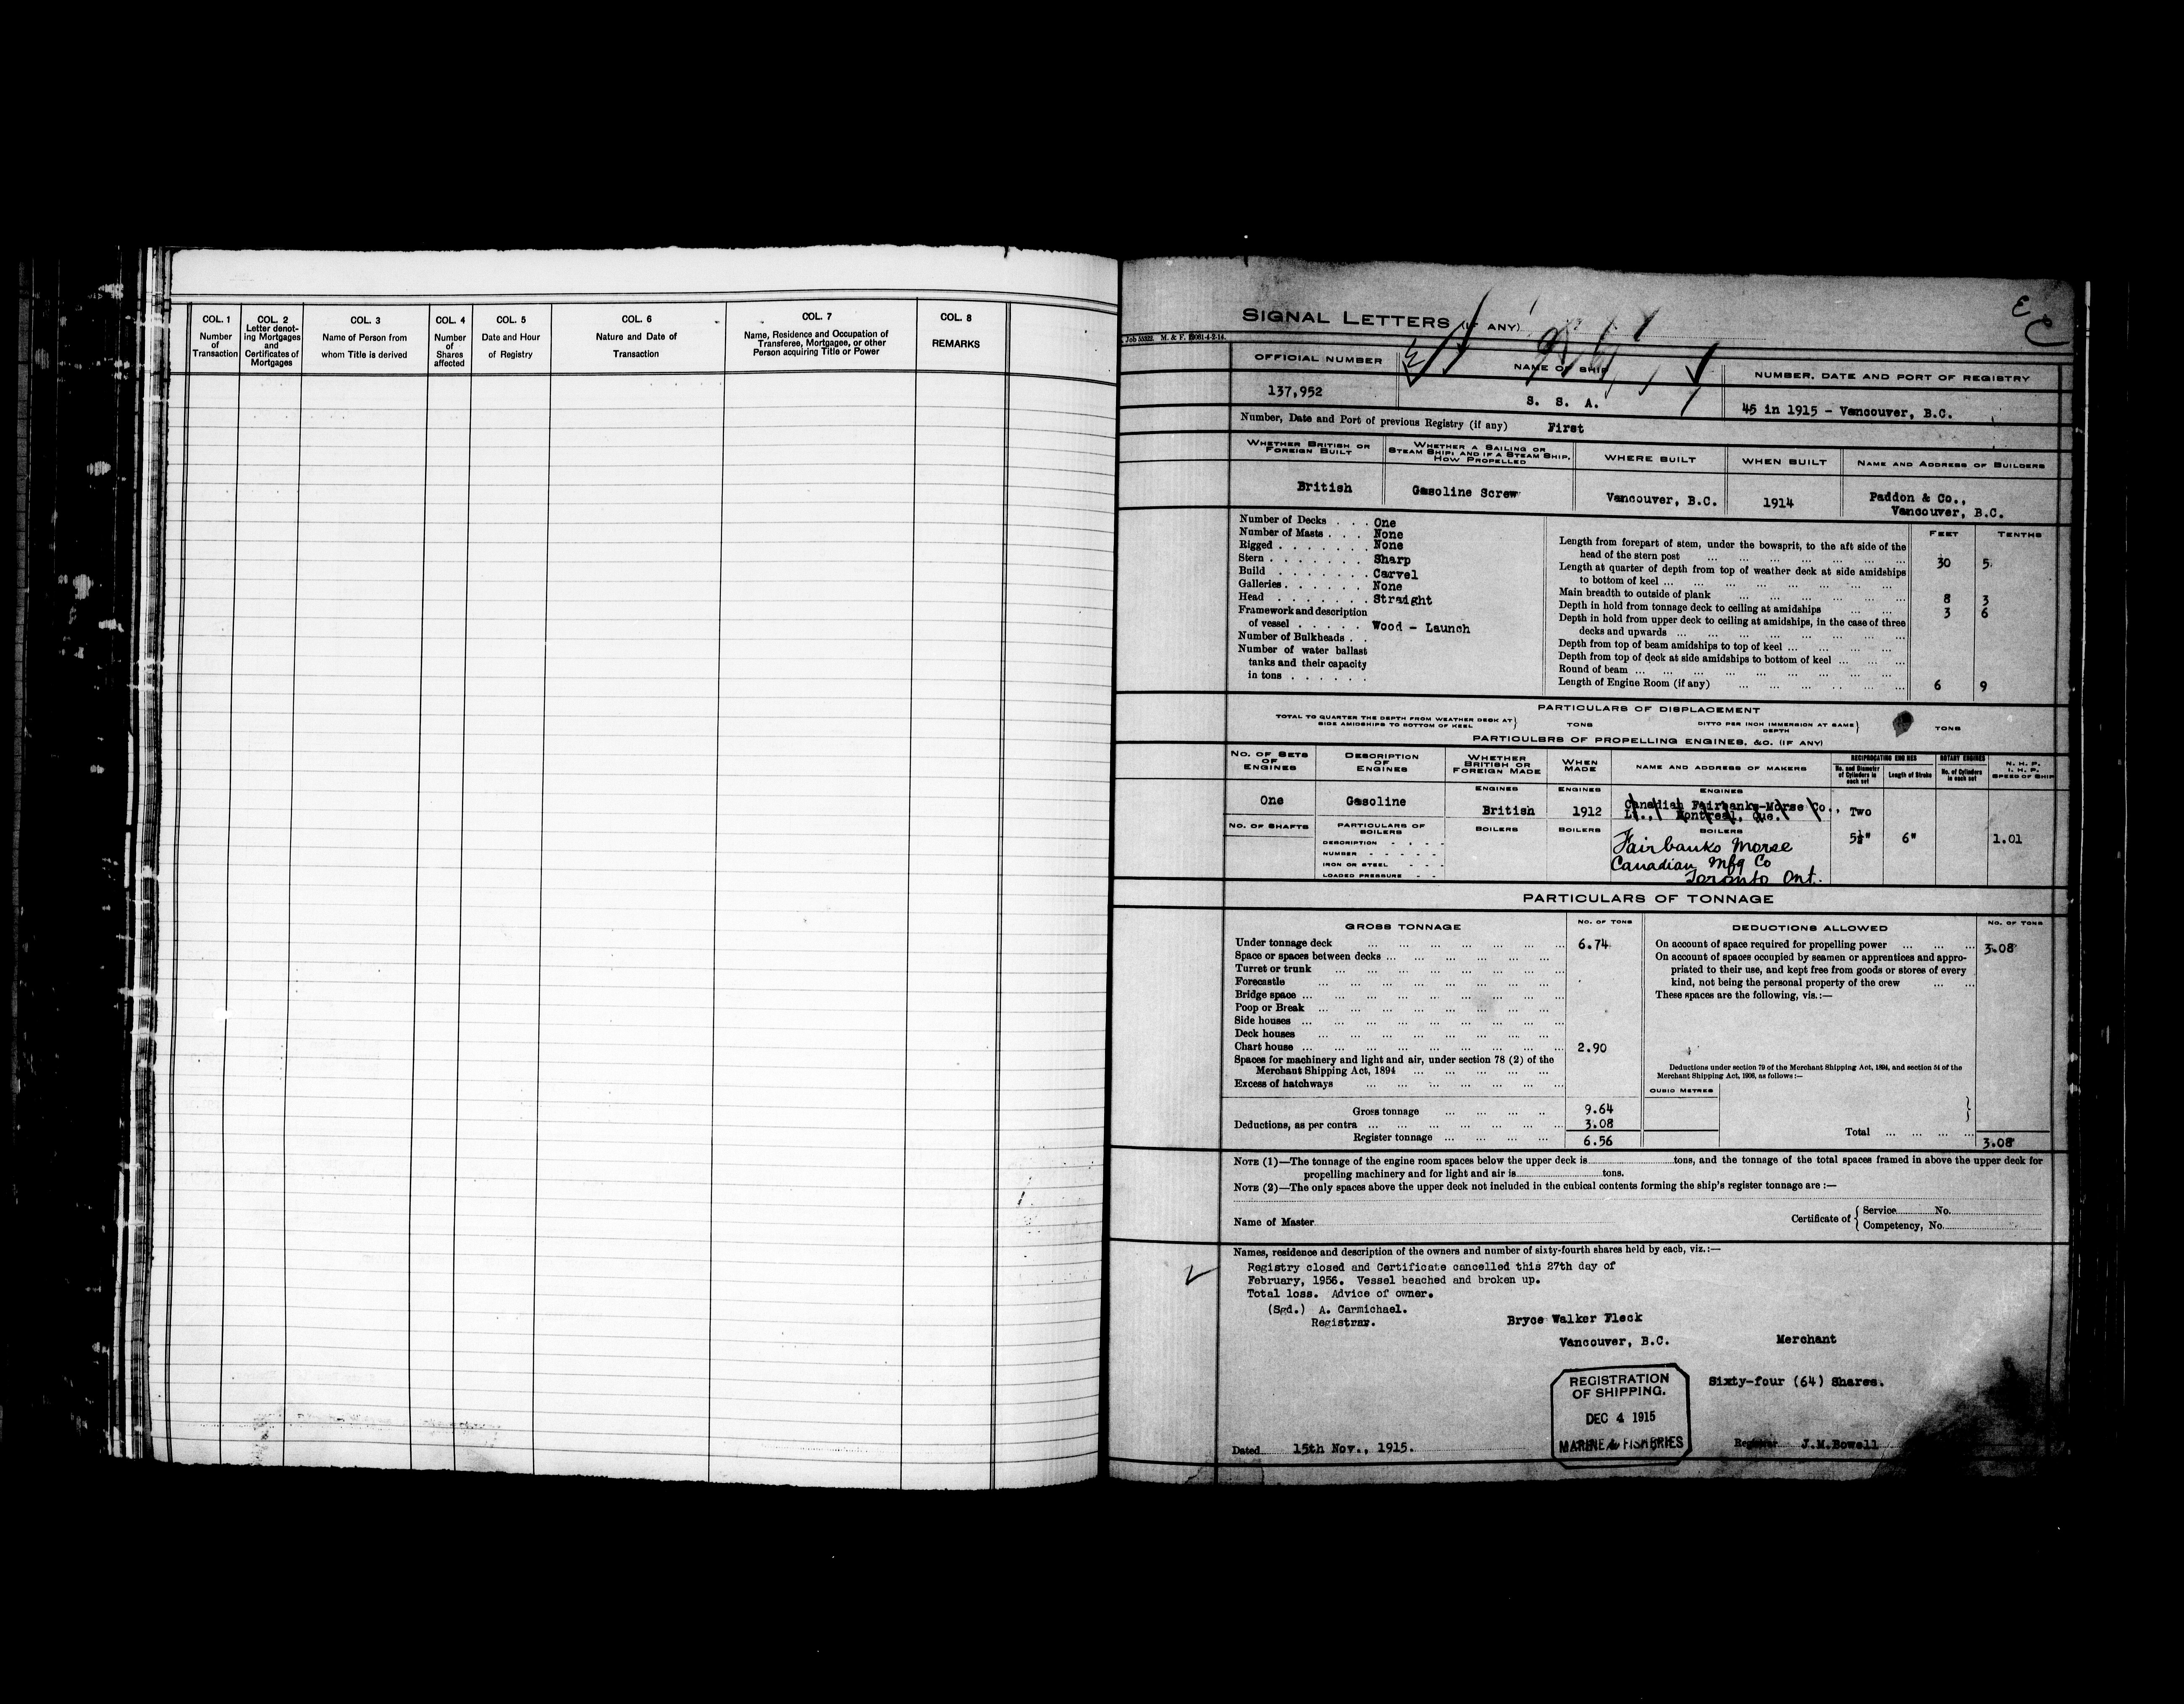 COL. 1 Number of Transaction
COL. 2 Letter denoting Mortgages and Certificates of Mortgages
COL. 3 Name of Person from whom Title is derived
COL. 4 Number of Shares affected
COL. 5 Date and Hour of Registry
COL. 6 Nature and Date of Transaction
COL. 7 Name, Residence and Occupation of Transferee, Mortgagee, or other Person acquiring Title or Power
COL. 8 REMARKS
SIGNAL LETTERS (IF ANY)
OFFICIAL NUMBER
NAME OF SHIP
NUMBER, DATE AND PORT OF REGISTRY
137,952
S. S. A.
45 in 1915 - Vancouver, B.C.
Number, Date and Port of previous Registry (if any) First
WHETHER BRITISH OR FOREIGN BUILT
WHETHER A SAILING OR STEAM SHIP; AND IF A STEAM SHIP, HOW PROPELLED
WHERE BUILT
WHEN BUILT
NAME AND ADDRESS OF BUILDERS
British
Gasoline Screw
Vancouver, B.C.
1914
Paddon & Co.,
Vancouver, B.C.
Number of Decks . . . One
Number of Masts . . . None
Rigged . . . . . . . None
Stern . . . . . . . Sharp
Build . . . . . . . Carvel
Galleries . . . . . . None
Head . . . . . . . Straight
Framework and description
of vessel . . . . . Wood - Launch
Number of Bulkheads . .
Number of water ballast
tanks and their capacity
in tons . . . . . .
FEET TENTHS
Length from forepart of stem, under the bowsprit, to the aft side of the
head of the stern post 30 5
Length at quarter of depth from top of weather deck at side amidships
to bottom of keel
Main breadth to outside of plank 8 3
Depth in hold from tonnage deck to ceiling at amidships 3 6
Depth in hold from upper deck to ceiling at amidships, in the case of three
decks and upwards
Depth from top of beam amidships to top of keel
Depth from top of deck at side amidships to bottom of keel
Round of beam
Length of Engine Room (if any) 6 9
PARTICULARS OF DISPLACEMENT
TOTAL TO QUARTER THE DEPTH FROM WEATHER DECK AT SIDE AMIDSHIPS TO BOTTOM OF KEEL } TONS
DITTO PER INCH IMMERSION AT SAME DEPTH } TONS
PARTICULSRS OF PROPELLING ENGINES, &C. (IF ANY)
NO. OF SETS OF ENGINES
DESCRIPTION OF ENGINES
WHETHER BRITISH OR FOREIGN MADE
WHEN MADE
NAME AND ADDRESS OF MAKERS
RECIPROCATING ENGINES
No. and Diameter of Cylinders in each set
Length of Stroke
ROTARY ENGINES
No. of Cylinders in each set
N. H. P.
I. H. P.
SPEED OF SHIP
ENGINES ENGINES ENGINES
One
Gasoline
British
1912
Canadian Fairbanks-Morse Co.,
Lt., Montreal, Que.
Two
NO. OF SHAFTS
PARTICULARS OF BOILERS
BOILERS BOILERS BOILERS
DESCRIPTION
NUMBER
IRON OR STEEL
LOADED PRESSURE
Fairbanks Morse
Canadian Mfg Co
Toronto Ont.
5½" 6" 1.01
PARTICULARS OF TONNAGE
GROSS TONNAGE NO. OF TONS
Under tonnage deck 6.74
Space or spaces between decks
Turret or trunk
Forecastle
Bridge space
Poop or Break
Side houses
Deck houses
Chart house 2.90
Spaces for machinery and light and air, under section 78 (2) of the
Merchant Shipping Act, 1894
Excess of hatchways
Gross tonnage 9.64
Deductions, as per contra 3.08
Register tonnage 6.56
DEDUCTIONS ALLOWED NO. OF TONS
On account of space required for propelling power 3.08
On account of spaces occupied by seamen or apprentices and appro-
priated to their use, and kept free from goods or stores of every
kind, not being the personal property of the crew
These spaces are the following, vis.:—
Deductions under section 79 of the Merchant Shipping Act, 1894, and section 54 of the
Merchant Shipping Act, 1906, as follows:—
CUBIC METRES
Total 3.08
NOTE (1)—The tonnage of the engine room spaces below the upper deck is tons, and the tonnage of the total spaces framed in above the upper deck for
propelling machinery and for light and air is tons.
NOTE (2)—The only spaces above the upper deck not included in the cubical contents forming the ship's register tonnage are :—
Name of Master
Certificate of { Service No.
Competency, No.
Names, residence and description of the owners and number of sixty-fourth shares held by each, viz.:—
Registry closed and Certificate cancelled this 27th day of
February, 1956. Vessel beached and broken up.
Total loss. Advice of owner.
(Sgd.) A. Carmichael.
Registrar.
Bryce Walker Fleck
Vancouver, B.C. Merchant
Sixty-four (64) Shares.
REGISTRATION
OF SHIPPING.
DEC 4 1915
MARINE & FISHERIES
Dated 15th Nov., 1915.
Registrar J.M.Bowell